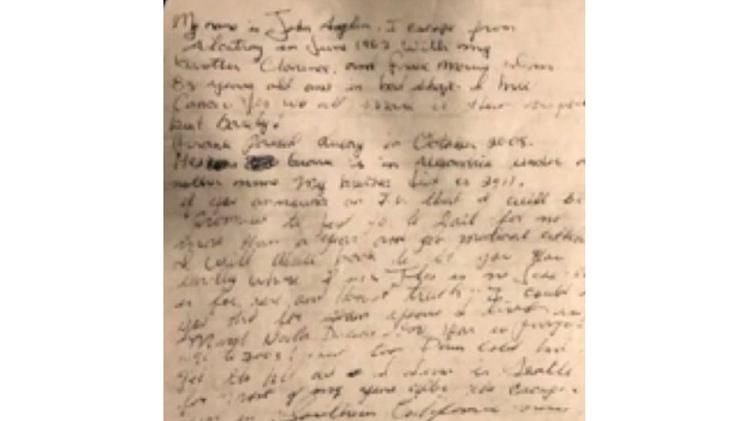 My name is John Anglin. I escape from
Alcatraz in June 1962 with my
brother Clarence, and Frank Morris. I'm
83 years old and in bad shape. I have
Cancer. Yes we all made it that night
but barely!
Frank passed away in October 2008.
His grave is in under
another name. My brother died in 2011.
if you announce on T.V. that I will be
promise to first go to jail for no
more than a year and get medical attention
I will write back to let you know
exactly where I am. This is no joke
is for real and honest truth. I could
tell you that for seven years I lived in
Minot North Dakota and a year in Fargo
2003
for most of my years after the escape.
in Southern California now